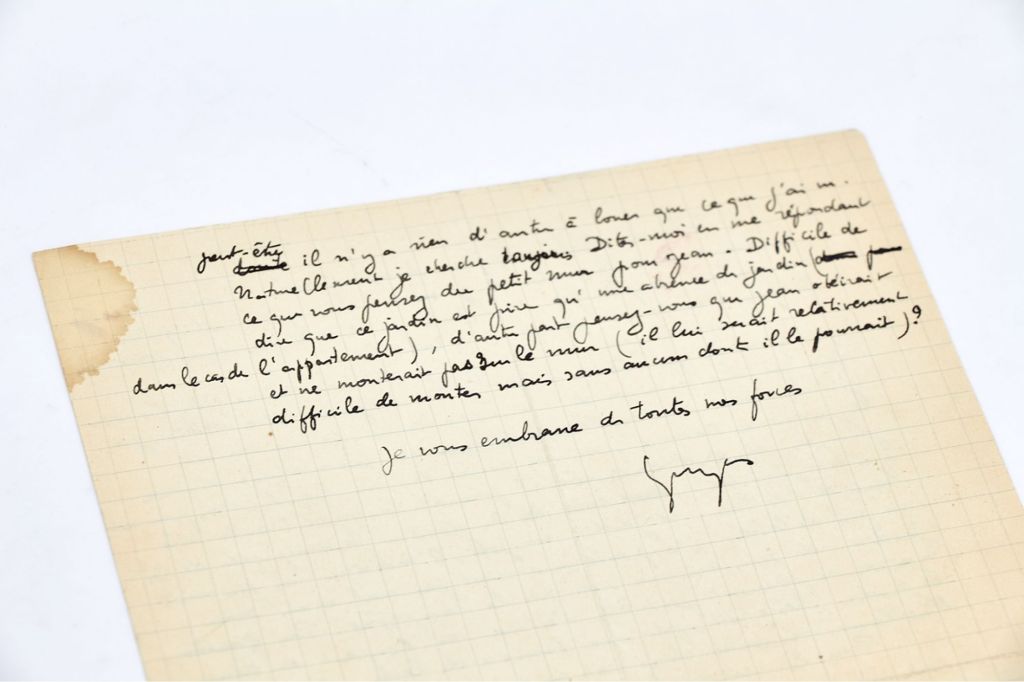 peut-être
il n'y a rien d'autre à louer que ce que j'ai
Naturellement je cherche toujours Dites-moi en me répondant
ce que vous pensez du petit mur pour Jean. Difficile de
dire que ce jardin est pire qu'une absence de jardin (
dans le cas de l'appartement), d'autre part pensez-vous que Jean obéirait
et ne monterait pas sur le mur (il lui serait relativement
difficile de monter mais sans aucun doute il le pourrait)?
Je vous embrasse de toutes mes forces